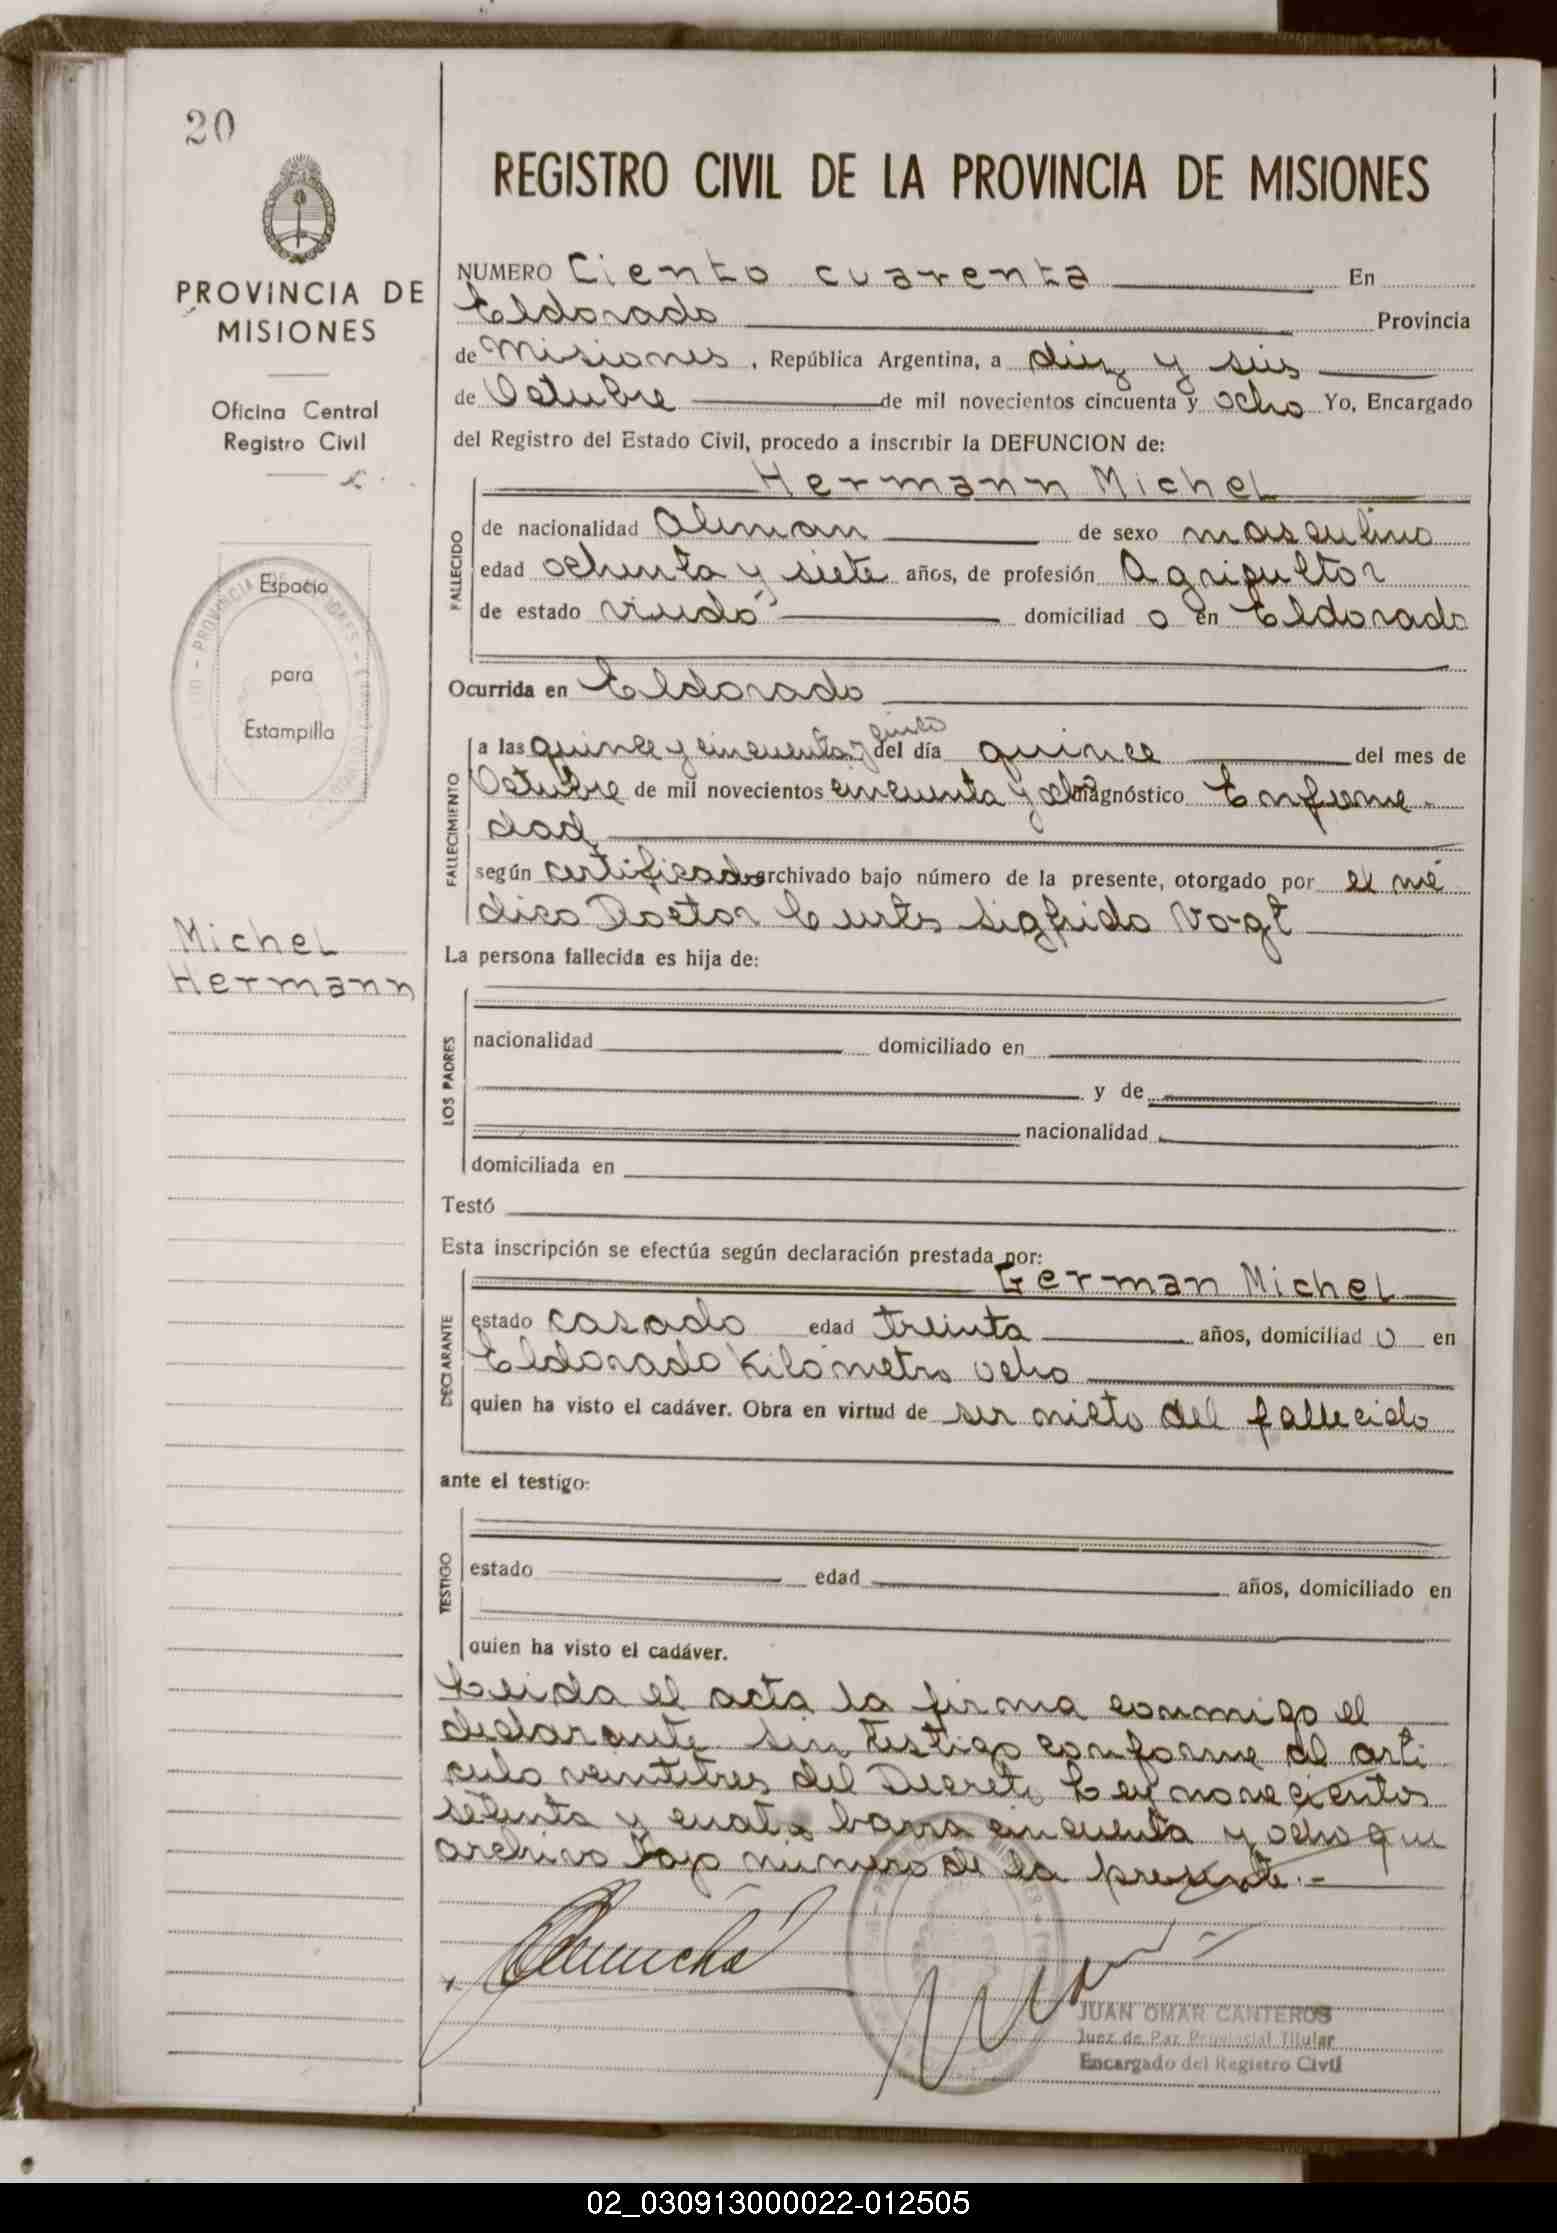 20
REGISTRO CIVIL DE LA PROVINCIA DE MISIONES
PROVINCIA DE
MISIONES
Oficina Central
Registro Civil
Espacio
para
Estampilla
Michel
Hermann
NUMERO Ciento cuarenta En
Eldorado Provincia
de Misiones, República Argentina, a diez y seis
de Octubre de mil novecientos cincuenta y ocho Yo, Encargado
del Registro del Estado Civil, procedo a inscribir la DEFUNCION de:
Hermann Michel
FALLECIDO
de nacionalidad Aleman de sexo masculino
edad ochenta y siete años, de profesión Agricultor
de estado viudo domiciliad o en Eldorado
Ocurrida en Eldorado
FALLECIMIENTO
a las quince y cincuenta y cinco del día quince del mes de
Octubre de mil novecientos cincuenta y ocho diagnóstico Enferme-
dad
según certificado archivado bajo número de la presente, otorgado por el mé
dico Doctor Curts Sigfrido Vogt
La persona fallecida es hija de:
LOS PADRES
nacionalidad domiciliado en
y de
nacionalidad
domiciliada en
Testó
Esta inscripción se efectúa según declaración prestada por:
German Michel
DECLARANTE
estado casado edad treinta años, domiciliad o en
Eldorado Kilómetro ocho
quien ha visto el cadáver. Obra en virtud de ser nieto del fallecido
ante el testigo:
TESTIGO
estado edad años, domiciliado en
quien ha visto el cadáver.
Leida el acta la firma conmigo el
declarante sin testigo conforme al arti
culo veintitres del Decreto Ley novecientos
setenta y cuatro barra cincuenta y ocho que
archivo bajo número de la presente.-
JUAN OMAR CANTEROS
Juez de Paz Provincial Titular
Encargado del Registro Civil
02_030913000022-012505